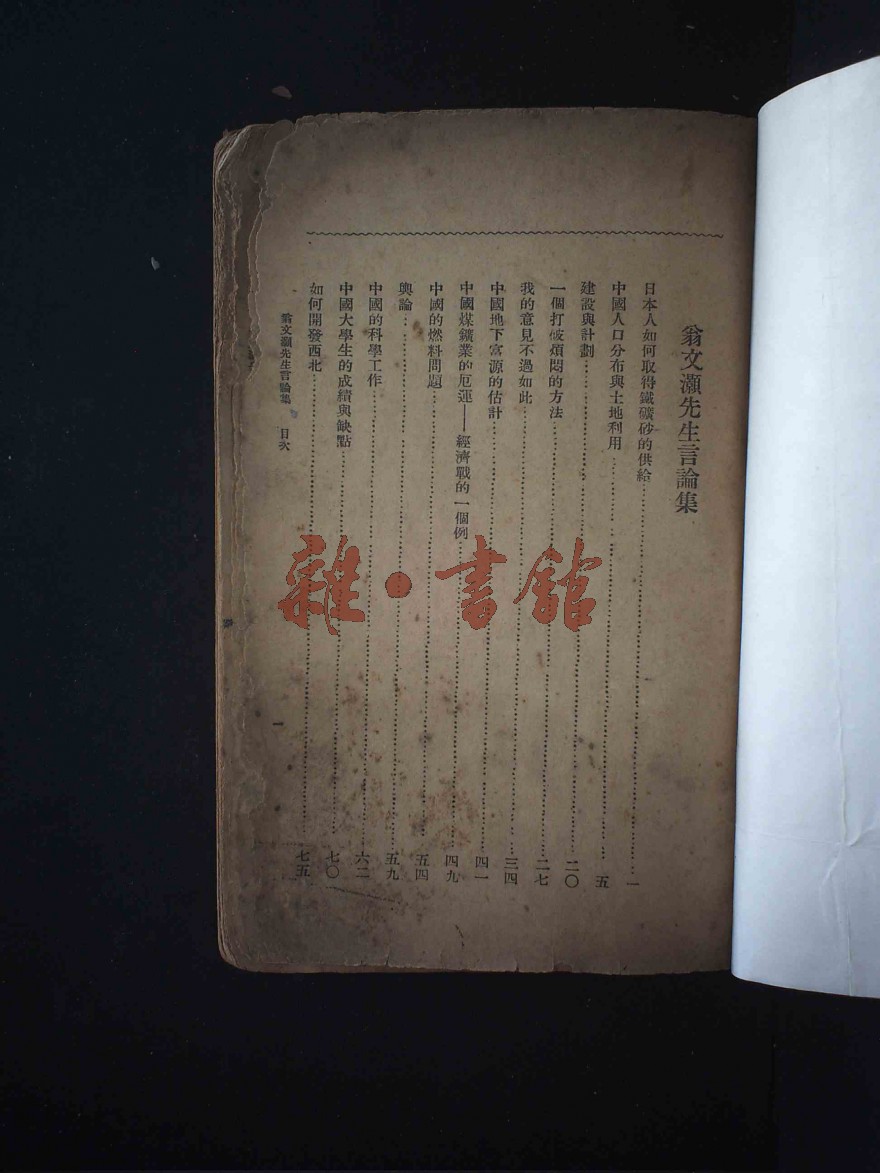 翁文灝先生言論集
日本人如何取得鐵礦砂的供給……一
中國人口分布與土地利用……五
建設與計劃……二〇
一個打破煩悶的方法……二七
我的意見不過如此……三四
中國地下富源的估計……四一
中國煤鑛業的厄運——經濟戰的一個例……四九
中國的燃料問題……五四
輿論……五九
中國的科學工作……六二
中國大學生的成績與缺點……七〇
如何開發西北……七五
翁文灝先生言論集 目次
一
雜·書館